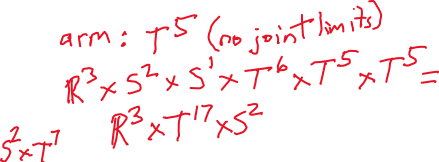 arm: T⁵ (no joint limits)
ℝ³ × S² × S¹ × T⁶ × T⁵ × T⁵ =
ℝ³ × T¹⁷ × S²
S² × T⁷